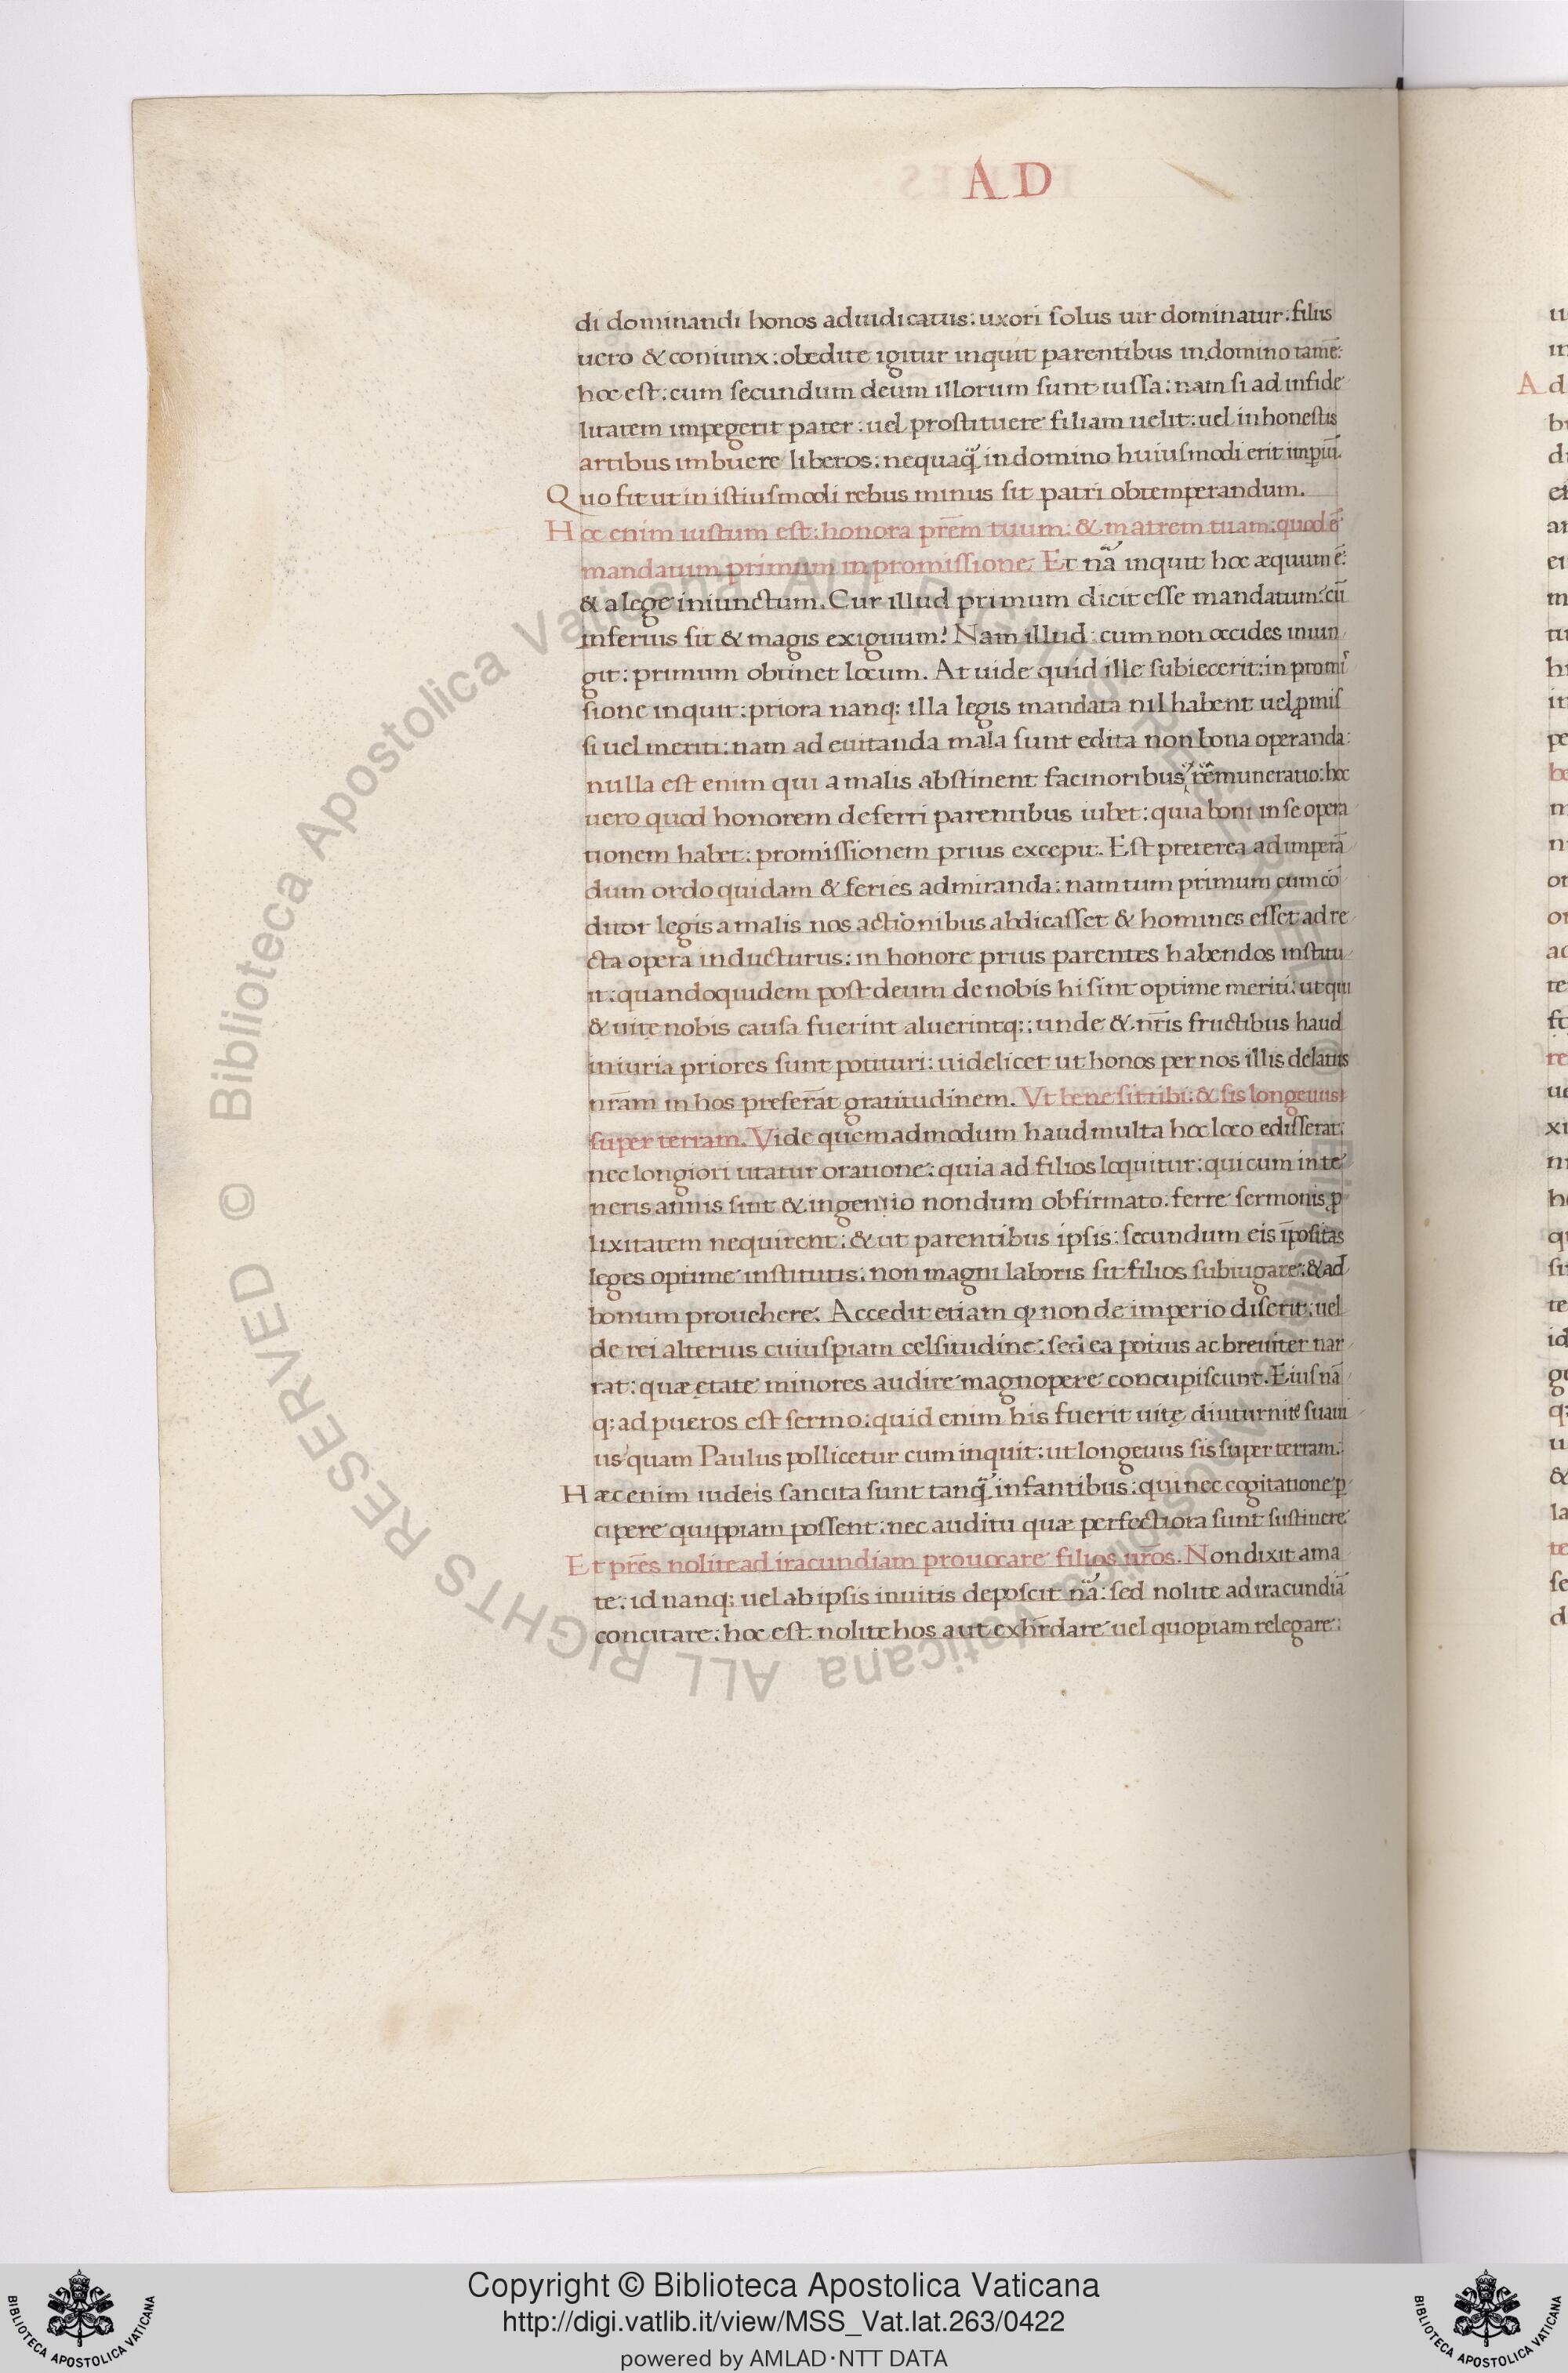 AD
di dominandi honos adiudicatus: uxori solus uir dominatur: filiis
uero & coniunx: obedite igitur inquit parentibus in domino tamē:
hoc est: cum secundum deum illorum sunt iussa: nam si ad infide
litatem impegerit pater: uel prostituere filiam uelit: uel inhonestis
artibus imbuere liberos: nequaq̃ in domino huiusmodi erit imperiū.
Quo fit ut in istiusmodi rebus minus sit patri obtemperandum.
Hoc enim iustum est: honora prēm tuum: & matrem tuam: quod ē
mandatum primum in promissione. Et nā inquit hoc æquum ē:
& a lege iniunctum. Cur illud primum dicit esse mandatum: cū
inferius sit & magis exiguum? Nam illud: cum non occides iniun
git: primum obtinet locum. At uide quid ille subiecerit: in promi
sione inquit: priora nanq; illa legis mandata nil habent uel ꝓmis
si uel meriti: nam ad euitanda mala sunt edita non bona operanda:
nulla est enim qui a malis abstinent facinoribus remuneratio: hoc
uero quod honorem deferri parentibus iubet: quia boni in se opera
tionem habet: promissionem prius excepit. Est preterea ad imperā
dum ordo quidam & series admiranda: nam tum primum cum cō
ditor legis a malis nos actionibus abdicasset & homines esset ad re
cta opera inducturus: in honore prius parentes habendos institu
it: quandoquidem post deum de nobis hi sint optime meriti: ut qui
& uitę nobis causa fuerint aluerintq;: unde & nr̄is fructibus haud
iniuria priores sunt potituri: uidelicet ut honos per nos illis delatus
nr̄am in hos preferat gratitudinem. Vt bene sit tibi: & sis longeuus
super terram. Vide quemadmodum haud multa hoc loco edisserat:
nec longiori utatur oratione: quia ad filios loquitur: qui cum in te
neris annis sint & ingenio nondum obfirmato: ferre sermonis ꝓ
lixitatem nequirent: & ut parentibus ipsis: secundum eis īpositas
leges optime institutis: non magni laboris sit filios subiugare: & ad
bonum prouehere. Accedit etiam ꝙ non de imperio diserit: uel
de rei alterius cuiuspiam celsitudine: sed ea potius ac breuiter nar
rat: quæ ętate minores audire magnopere concupiscunt. Eius nā
q; ad pueros est sermo: quid enim his fuerit uitę diuturnitē suaui
us quam Paulus pollicetur cum inquit: ut longeuus sis super terram.
Hæc enim iudeis sancita sunt tanq̃ infantibus: qui nec cogitatione ꝑ
cipere quippiam possent: nec auditu quæ perfectiora sunt sustinere
Et prēs nolite ad iracundiam prouocare filios uros. Non dixit ama
te: id nanq; uel ab ipsis inuitis deposcit nā: sed nolite ad iracundiā
concitare: hoc est nolite hos aut exhr̄dare uel quopiam relegare:
u
in
A d
Biblioteca Apostolica Vaticana ALL RIGHTS RESERVED ©
Copyright © Biblioteca Apostolica Vaticana
http://digi.vatlib.it/view/MSS_Vat.lat.263/0422
powered by AMLAD·NTT DATA
BIBLIOTECA APOSTOLICA VATICANA
BIBLIOTECA APOSTOLICA VATICANA